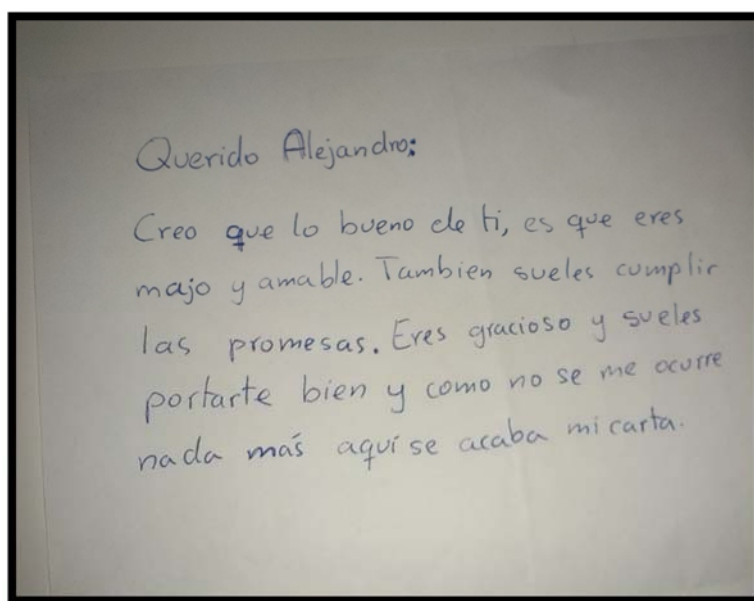 Querido Alejandro:
Creo que lo bueno de ti, es que eres
majo y amable. Tambien sueles cumplir
las promesas. Eres gracioso y sueles
portarte bien y como no se me ocurre
nada más aquí se acaba mi carta.